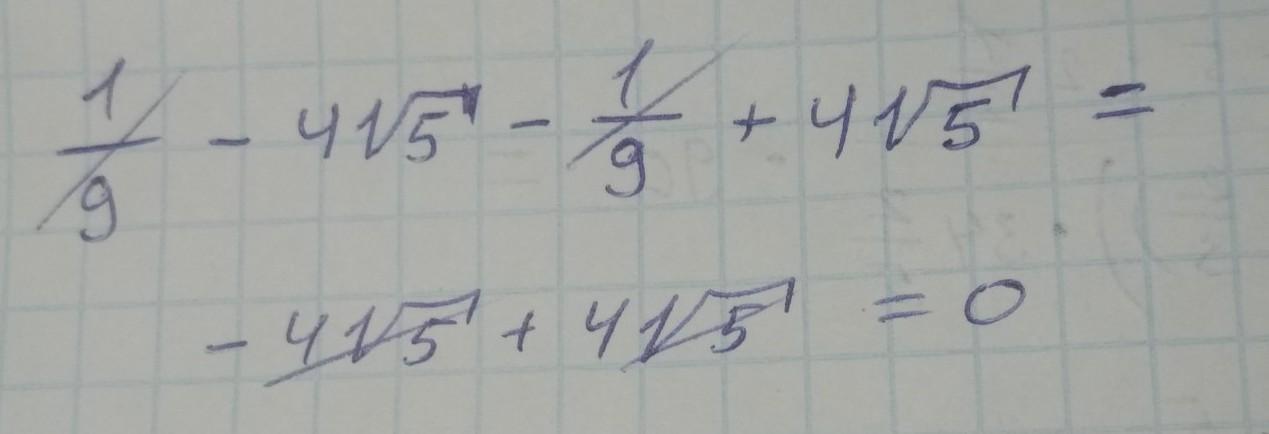 1/9 - 4√5 - 1/9 + 4√5 =
- 4√5 + 4√5 = 0